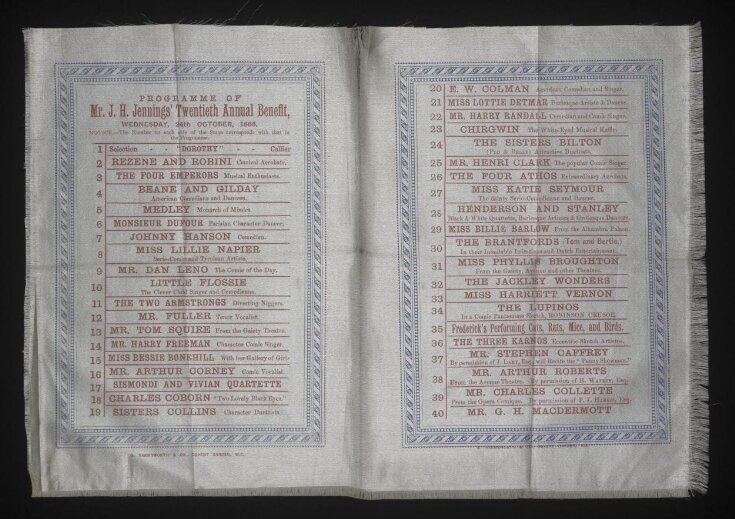 PROGRAMME OF
Mr. J. H. Jennings' Twentieth Annual Benefit,
WEDNESDAY, 24th OCTOBER, 1888.
NOTICE.—The Number on each side of the Stage corresponds with that in
the Programme.
1 Selection - - "DOROTHY" - - Cellier
2 REZENE AND ROBINI Comical Acrobats.
3 THE FOUR EMPERORS Musical Enthusiasts.
4 BEANE AND GILDAY
American Comedians and Dancers.
5 MEDLEY Monarch of Mimics.
6 MONSIEUR DUFOUR Parisian Character Dancer.
7 JOHNNY HANSON Comedian.
8 MISS LILLIE NAPIER
Serio-Comic and Tyrolean Artiste.
9 MR. DAN LENO The Comic of the Day.
10 LITTLE FLOSSIE
The Clever Child Singer and Comedienne.
11 THE TWO ARMSTRONGS Diverting Niggers.
12 MR. FULLER Tenor Vocalist.
13 MR. TOM SQUIRE From the Gaiety Theatre.
14 MR. HARRY FREEMAN Character Comic Singer.
15 MISS BESSIE BONEHILL With her Gallery of Girls
16 MR. ARTHUR CORNEY Comic Vocalist.
17 SISMONDI AND VIVIAN QUARTETTE
18 CHARLES COBORN "Two Lovely Black Eyes."
19 SISTERS COLLINS Character Duettists.
COVENT GARDEN, W.C.
20 E. W. COLMAN American Comedian and Singer.
21 MISS LOTTIE DETMAR Burlesque Artiste & Dancer.
22 MR. HARRY RANDALL Comedian and Comic Singer.
23 CHIRGWIN The White-Eyed Musical Kaffir.
24 THE SISTERS BILTON
Attractive Duettists.
25 MR. HENRI CLARK The popular Comic Singer
26 THE FOUR ATHOS Extraordinary Acrobats.
27 MISS KATIE SEYMOUR
The dainty Serio-Comedienne and Dancer.
28 HENDERSON AND STANLEY
Black & White Quartette, Burlesque Artistes & Grotesque Dancers.
29 MISS BILLIE BARLOW From the Alhambra Palace.
30 THE BRANTFORDS (Tom and Bertie,)
In their Inimitable Eccentric and Dutch Entertainment.
31 MISS PHYLLIS BROUGHTON
From the Gaiety, Avenue and other Theatres.
32 THE JACKLEY WONDERS
33 MISS HARRIETT VERNON
34 THE LUPINOS
In a Comic Pantomime Sketch, ROBINSON CRUSOE.
35 Frederick's Performing Cats, Rats, Mice, and Birds.
36 THE THREE KARNOS Eccentric Sketch Artistes.
37 MR. STEPHEN CAFFREY
By permission of J. Lake, Esq., will Recite the "Penny Showman."
38 MR. ARTHUR ROBERTS
From the Avenue Theatre. By permission of H. Watkin, Esq.
39 MR. CHARLES COLLETTE
From the Opera Comique. By permission of Esq.
40 MR. G. H. MACDERMOTT